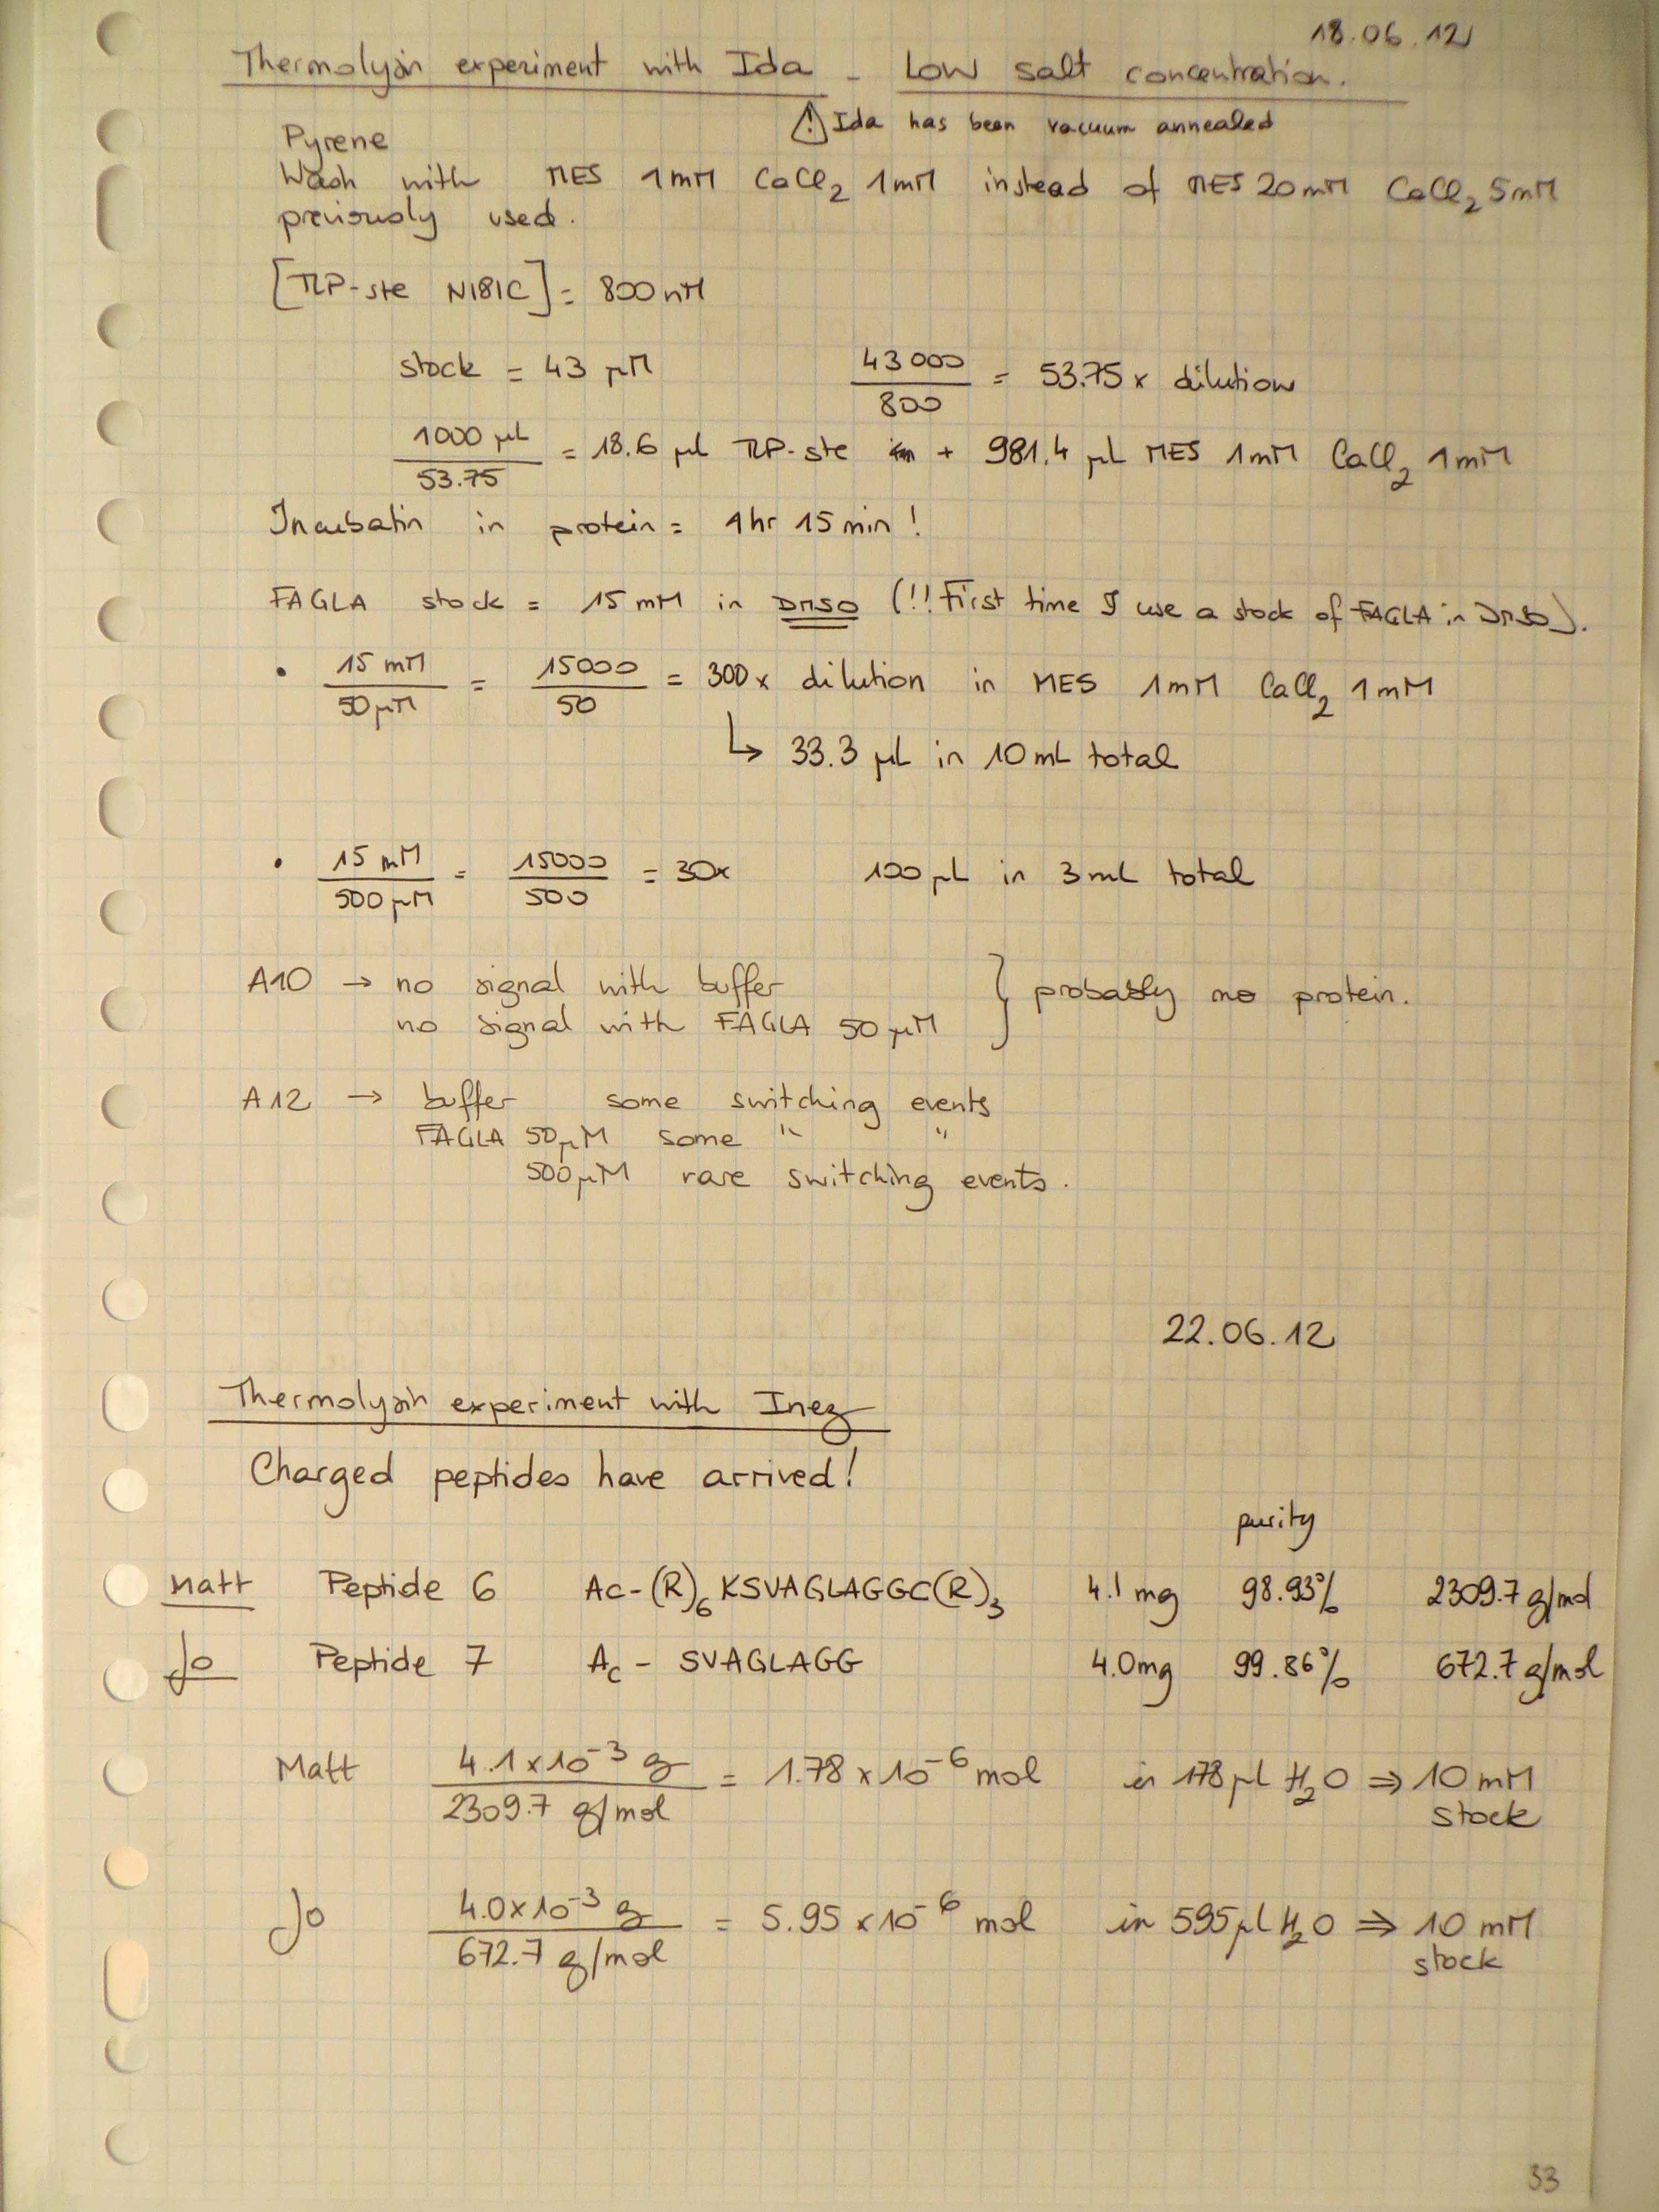 18.06.12
Thermolysin experiment with Ida - Low salt concentration.
⚠ Ida has been vacuum annealed
Pyrene
Wash with MES 1mM CaCl2 1mM instead of MES 20mM CaCl2 5mM
previously used.
[TLP-ste N181C] = 800 nM
stock = 43 µM 43000/800 = 53.75 x dilution
1000 µL/53.75 = 18.6 µl TLP-ste + 981.4 µL MES 1mM CaCl2 1mM
Incubatin in protein = 1hr 15min!
FAGLA stock = 15 mM in DMSO (!! First time I use a stock of FAGLA in DMSO).
• 15 mM/50 µM = 15000/50 = 300x dilution in MES 1mM CaCl2 1mM
↳ 33.3 µL in 10mL total
• 15 mM/500 µM = 15000/500 = 30x 100 µL in 3mL total
A10 → no signal with buffer
no signal with FAGLA 50 µM } probably no protein.
A12 → buffer some switching events
FAGLA 50µM some " "
500µM rare switching events.
22.06.12
Thermolysin experiment with Inez
Charged peptides have arrived!
purity
Matt Peptide 6 Ac-(R)6 KSVAGLAGGC(R)3 4.1 mg 98.93% 2309.7 g/mol
Jo Peptide 7 Ac - SVAGLAGG 4.0mg 99.86% 672.7 g/mol
Matt 4.1x10-3 g/2309.7 g/mol = 1.78 x10-6 mol in 178 µL H2O ⇒ 10 mM
stock
Jo 4.0x10-3 g/672.7 g/mol = 5.95 x10-6 mol in 595 µl H2O ⇒ 10 mM
stock
33